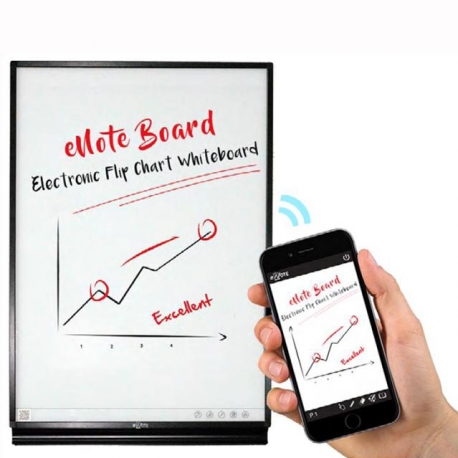 eNote Board
Electronic Flip Chart Whiteboard
Excellent
1 2 3 4
eNote Board
Electronic Flip Chart Whiteboard
Excellent
P.1